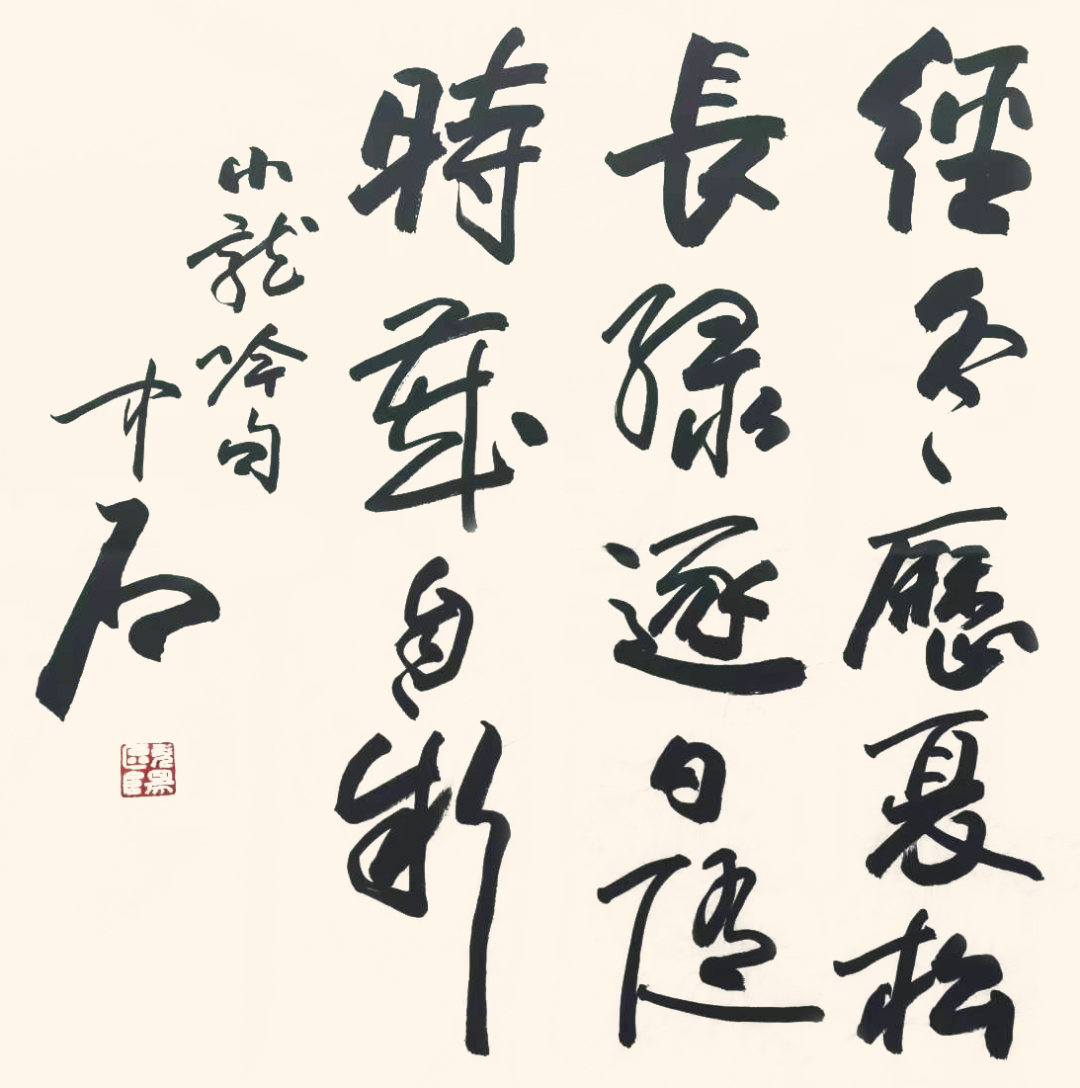 經冬歷夏松
長綠逐日隨
時歲自新
小龍吟句
中石